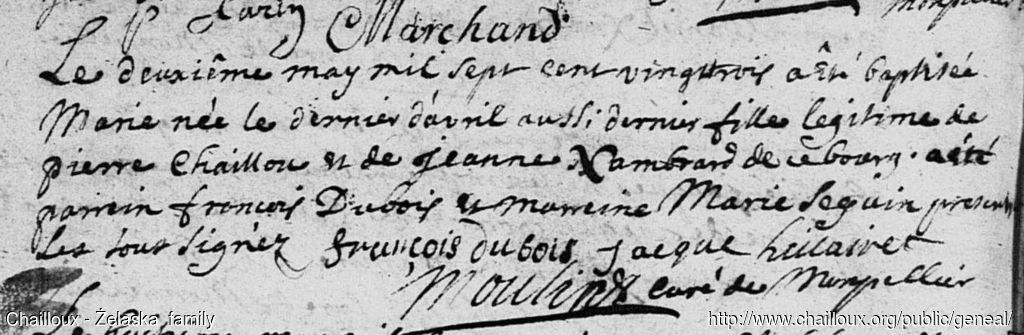 Marchand
Le deuxiême may mil sept cent vingttrois a êté baptisée
Marie née le dernier d'avril aussi dernier fille legitime de
pierre Chaillou et de jeanne Xambrard de ce bourg. a êté
parrein francois Dubois et marreine Marie Seguin presents
les sous signéz françois dubois jacque hilairet
Moulins curé de Monpellier
Chailloux - Żelaska family
http://www.chailloux.org/public/geneal/